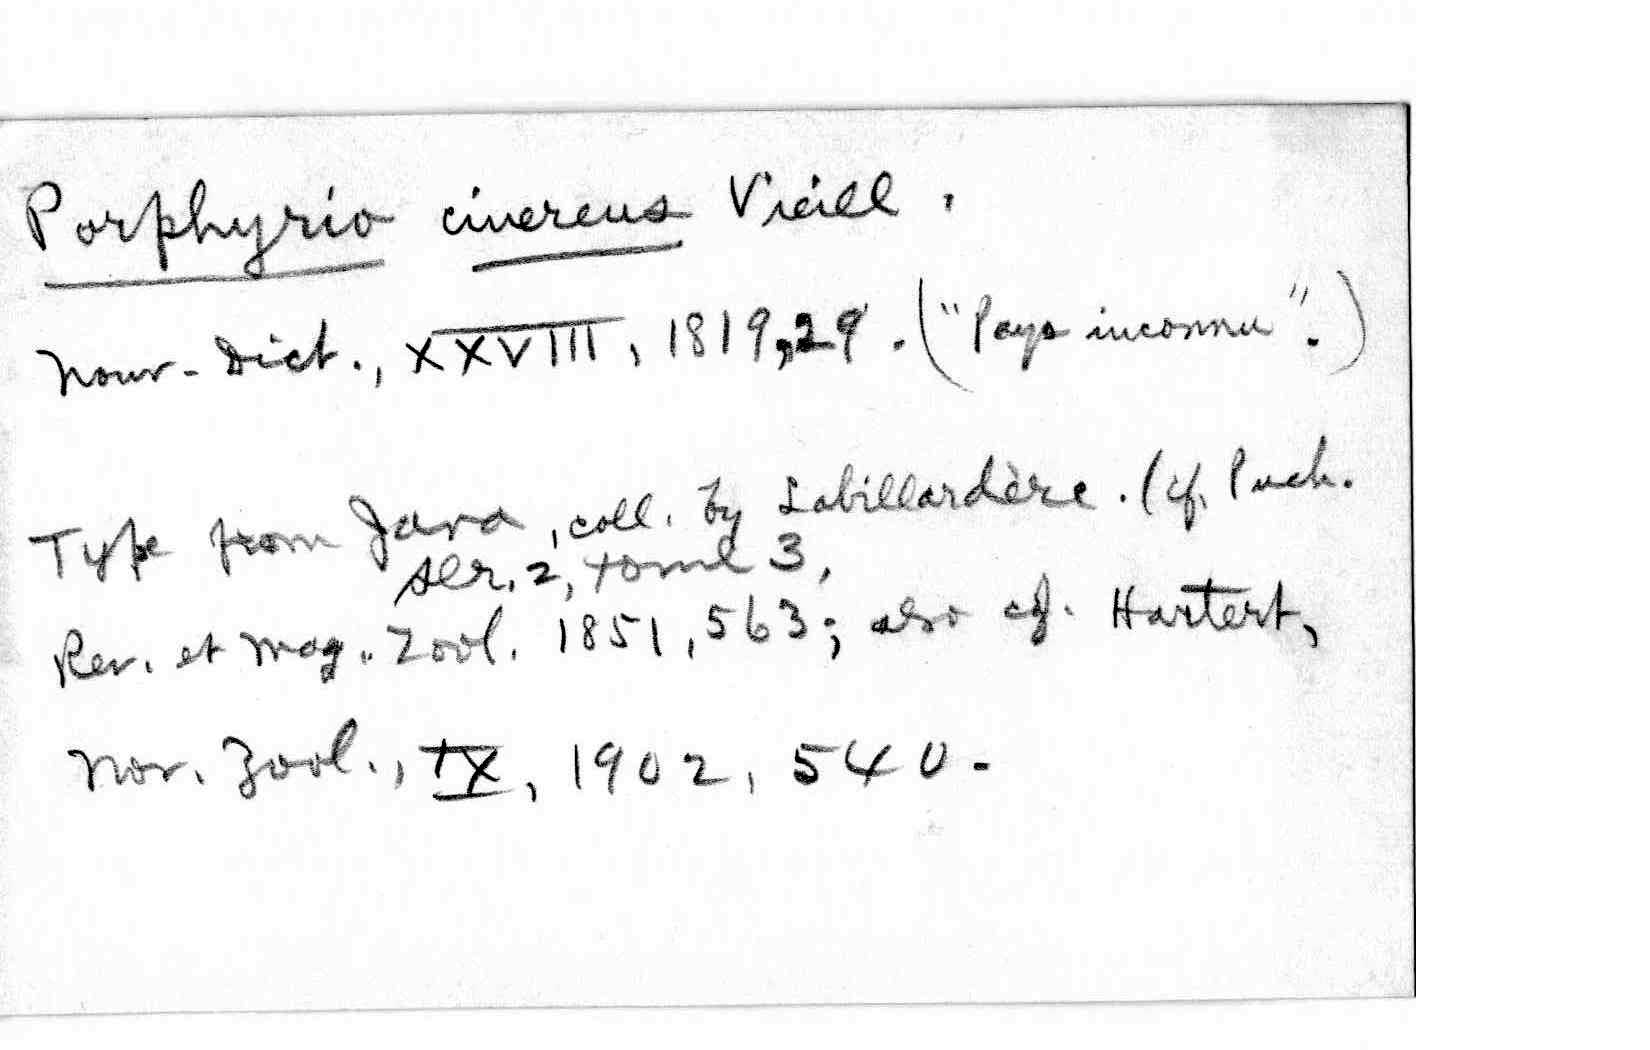 Porphyrio cinereus Vieill.
Nouv. Dict., XXVIII, 1819, 29. ("Pays inconnu".)
Type from Java, coll. by Labillardère. (cf. Puch.
ser. 2, tome 3,
Rev. et Mag. Zool. 1851, 563; also cf. Hartert,
Nov. Zool., IX, 1902, 540.